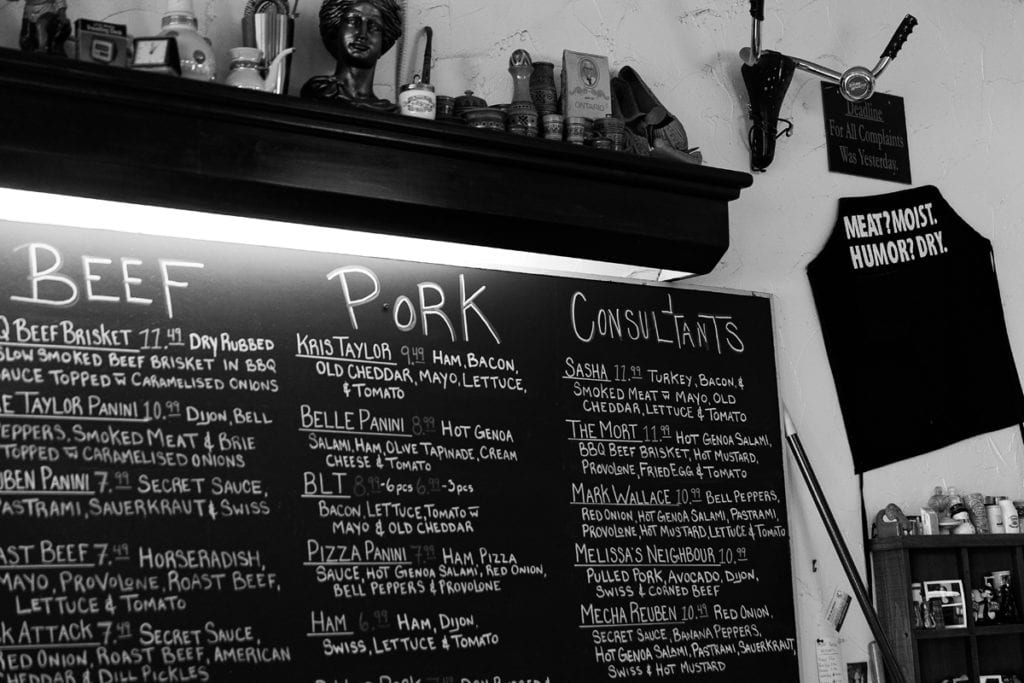 ONTARIO
Deadline
For All Complaints
Was Yesterday.
MEAT? MOIST.
HUMOR? DRY.
BEEF
BEEF BRISKET 11.49 DRY RUBBED
SLOW SMOKED BEEF BRISKET IN BBQ
SAUCE TOPPED W CARAMELISED ONIONS
TAYLOR PANINI 10.99 DIJON, BELL
PEPPERS, SMOKED MEAT & BRIE
TOPPED W CARAMELISED ONIONS
REUBEN PANINI 7.99 SECRET SAUCE,
PASTRAMI, SAUERKRAUT & SWISS
ROAST BEEF 7.49 HORSERADISH,
MAYO, PROVOLONE, ROAST BEEF,
LETTUCE & TOMATO
ATTACK 7.49 SECRET SAUCE,
RED ONION, ROAST BEEF, AMERICAN
CHEDDAR & DILL PICKLES
PORK
KRIS TAYLOR 9.49 HAM, BACON,
OLD CHEDDAR, MAYO, LETTUCE,
& TOMATO
BELLE PANINI 8.99 HOT GENOA
SALAMI, HAM, OLIVE TAPINADE, CREAM
CHEESE & TOMATO
BLT 8.99-6PCS 6.99-3PCS
BACON, LETTUCE, TOMATO W
MAYO & OLD CHEDDAR
PIZZA PANINI 7.99 HAM, PIZZA
SAUCE, HOT GENOA SALAMI, RED ONION,
BELL PEPPERS & PROVOLONE
HAM 6.99 HAM, DIJON,
SWISS, LETTUCE & TOMATO
CONSULTANTS
SASHA 11.99 TURKEY, BACON, &
SMOKED MEAT W MAYO, OLD
CHEDDAR, LETTUCE & TOMATO
THE MORT 11.99 HOT GENOA SALAMI,
BBQ BEEF BRISKET, HOT MUSTARD,
PROVOLONE, FRIED EGG & TOMATO
MARK WALLACE 10.99 BELL PEPPERS,
RED ONION, HOT GENOA SALAMI, PASTRAMI,
PROVOLONE, HOT MUSTARD, LETTUCE & TOMATO
MELISSA'S NEIGHBOUR 10.99
PULLED PORK, AVOCADO, DIJON,
SWISS & CORNED BEEF
MECHA REUBEN 10.49 RED ONION,
SECRET SAUCE, BANANA PEPPERS,
HOT GENOA SALAMI, PASTRAMI, SAUERKRAUT,
SWISS & HOT MUSTARD